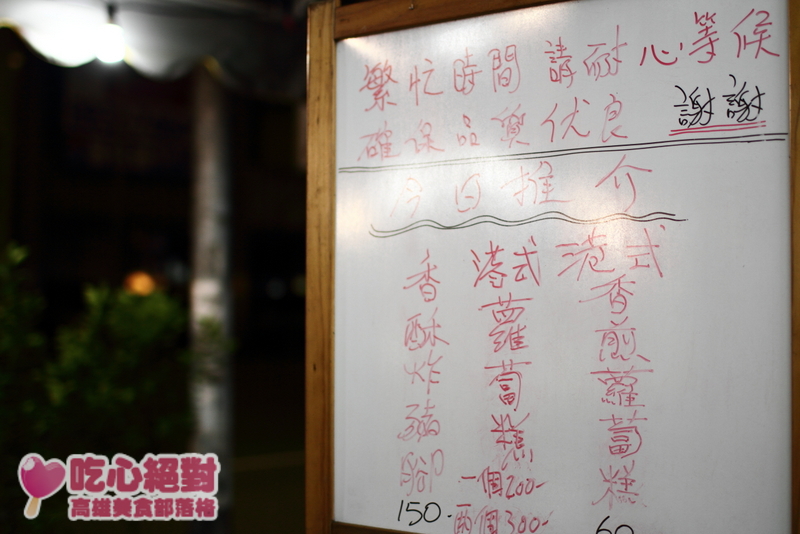 繁忙時間 請耐心等候
確保品質优良 謝謝
今日推介
港式香煎蘿蔔糕
60
港式蘿蔔糕
一個200-
兩個300-
香酥炸豬腳
150-
吃心絕對
高雄美食部落格